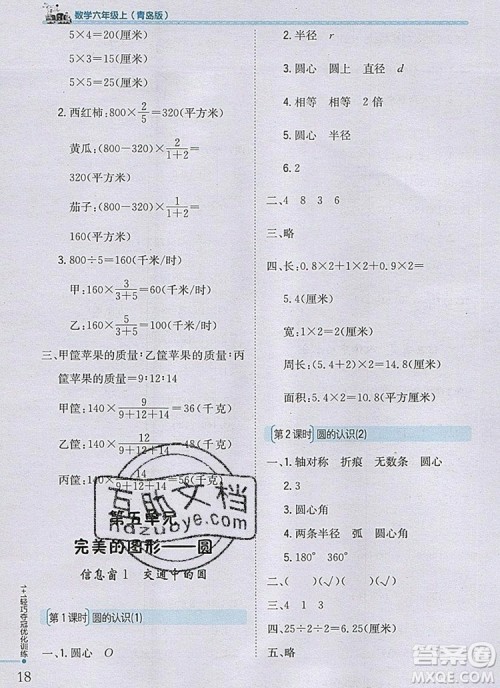 数学六年级上(青岛版)
5×4=20(厘米)
5×5=25(厘米)
2.西红柿:800×2/5=320(平方米)
黄瓜:(800-320)×2/(1+2)=
320(平方米)
茄子:(800-320)×1/(1+2)=
160(平方米)
3.800÷5=160(千米/时)
甲:160×3/(3+5)=60(千米/时)
乙:160×5/(3+5)=100(千米/时)
三、甲筐苹果的质量:乙筐苹果的质量:丙
筐苹果的质量=9:12:14
甲筐:140×9/(9+12+14)=36(千克)
乙筐:140×12/(9+12+14)=48(千克)
丙筐:140×14/(9+12+14)=56(千克)
第五单元
完美的图形——圆
信息窗1 交通中的圆
第1课时 圆的认识(1)
一、1.圆心 O
2.半径 r
3.圆心 圆上 直径 d
4.相等 相等 2倍
5.圆心 半径
6.2
二、4 8 3 6
三、略
四、长:0.8×2+1×2+0.9×2=
5.4(厘米)
宽:1×2=2(厘米)
周长:(5.4+2)×2=14.8(厘米)
面积:5.4×2=10.8(平方厘米)
第2课时 圆的认识(2)
一、1.轴对称 折痕 无数条 圆心
2.3
3.圆心角
4.两条半径 弧 圆心角
5.180° 360°
二、( )(√)(√)( )
三、略
四、25.12÷2-6.28×2=
1+1轻巧夺冠优化训练
18
互助文档
hdzuoye.com
答案圈
MXQE.COM